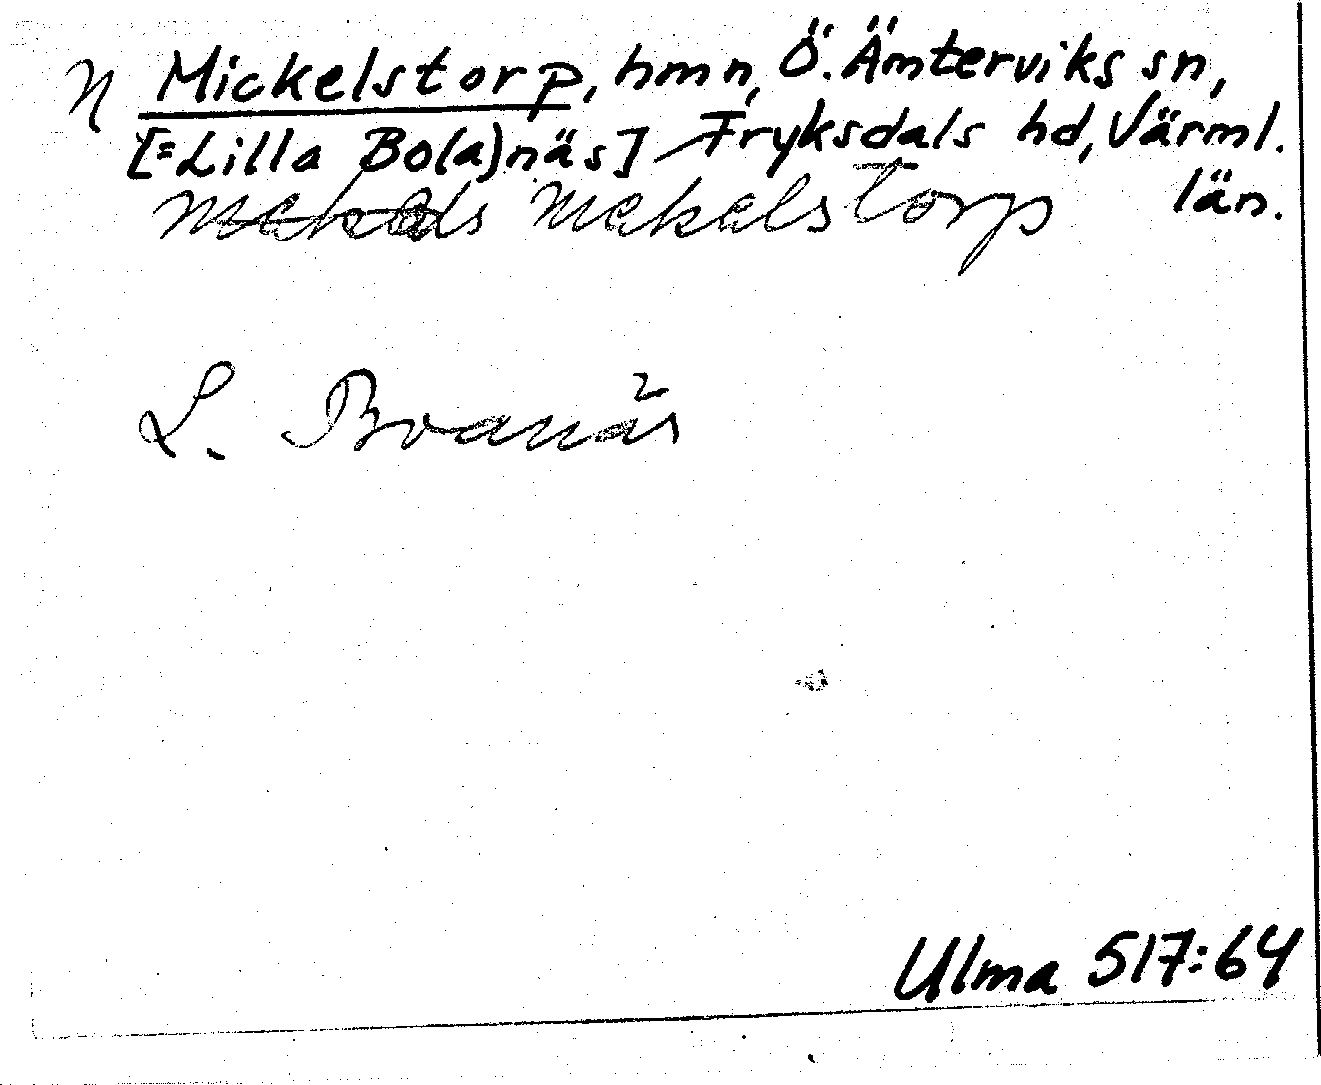 Mickelstorp, hmn, Ö. Ämterviks sn,
[=Lilla Bo(la)näs] Fryksdals hd, Värml.
län.
Mekels Mekelstorp
L. Boanäs
Ulma 517:64